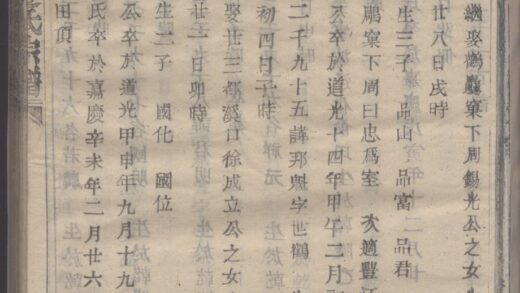 繼娶鷓鴣窠下周錫光公之女生
廿八日戌時
生三子 品山 品富 品君
鴣窠下周曰忠爲室 次適豐江
公卒於道光十四年甲午二月
二千九十五諱邦魁字世鶴
初四日子時
娶廿三都溪口徐成立公之女生
廿三日卯時
生二子 國化 國位
公卒於道光甲申年九月十九
氏卒於嘉慶辛未年二月廿六
田頂
氏宗譜